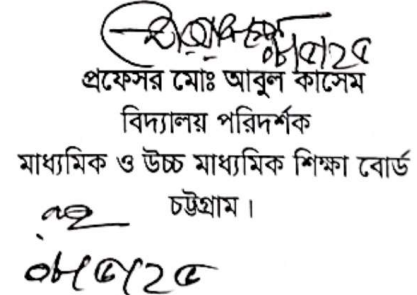 ০৮/৫/২৫
প্রফেসর মোঃ আবুল কাসেম
বিদ্যালয় পরিদর্শক
মাধ্যমিক ও উচ্চ মাধ্যমিক শিক্ষা বোর্ড
চট্টগ্রাম।
০৮/৫/২৫